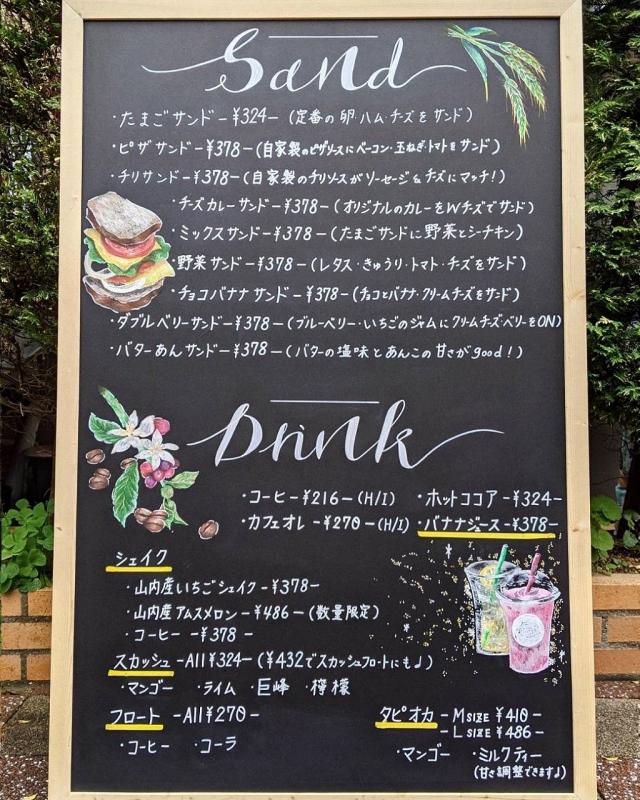 Sand
・たまごサンド-¥324-(定番の卵・ハム・チーズをサンド)
・ピザサンド-¥378-(自家製のピザソースにベーコン・玉ねぎ・トマトをサンド)
・チリサンド-¥378-(自家製のチリソースがソーセージ&チーズにマッチ!)
・チーズカレーサンド-¥378-(オリジナルのカレーをWチーズでサンド)
・ミックスサンド-¥378-(たまごサンドに野菜とシーチキン)
・野菜サンド-¥378-(レタス・きゅうり・トマト・チーズをサンド)
・チョコバナナサンド-¥378-(チョコとバナナ・クリームチーズをサンド)
・ダブルベリーサンド-¥378-(ブルーベリー・いちごのジャムにクリームチーズ・ベリーをON)
・バターあんサンド-¥378-(バターの塩味とあんこの甘さがgood!)
Drink
・コーヒー-¥216-(H/I) ・ホットココア-¥324-
・カフェオレ-¥270-(H/I) ・バナナジュース-¥378-
シェイク
・山内産いちごシェイク-¥378-
・山内産アムスメロン-¥486-(数量限定)
・コーヒー -¥378-
スカッシュ-All¥324-(¥432でスカッシュフロートにも♩)
・マンゴー ・ライム ・巨峰 ・檸檬
フロート-All¥270-
・コーヒー ・コーラ
タピオカ-M SIZE ¥410-
-L SIZE ¥486-
・マンゴー ・ミルクティー
(甘さ調整できます♩)